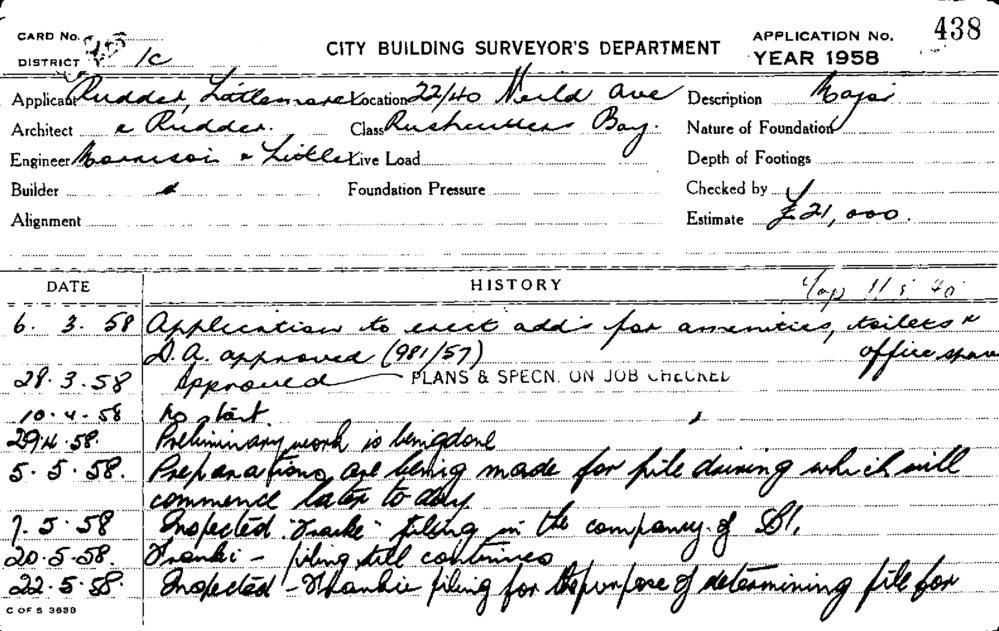 CARD No.
438
CITY BUILDING SURVEYOR'S DEPARTMENT
APPLICATION No.
DISTRICT 1C
YEAR 1958
Applicant Rudder, Littlemore Location 22/40 Neild Ave Description Major
Architect & Rudder. Class Rushcutters Bay. Nature of Foundation
Engineer Morrison & Little Live Load Depth of Footings
Builder Foundation Pressure Checked by
Alignment Estimate £21,000.
DATE HISTORY
6. 3. 58 Application to erect adds for amenities, toilets &
D.A. approved (981/57) office space
28.3.58 Approved PLANS & SPECN. ON JOB CHECKED
10-4-58 No start.
29.4.58. Preliminary work is being done
5.5.58. Preparations are being made for pile driving which will
commence later to day
7.5.58 Inspected "Franki" piling in the company of
20.5.58. Franki - piling still continues
22.5.58. Inspected - Frankie piling for the purpose of determining pile for
C OF S 3638